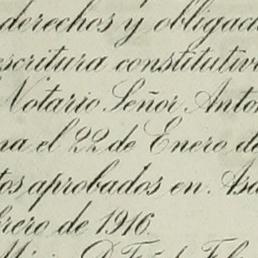 derechos y obligac
escritura constitutiv
Notario Señor Anto
na el 22 de Enero de
tos aprobados en Asa
brero de 1916.